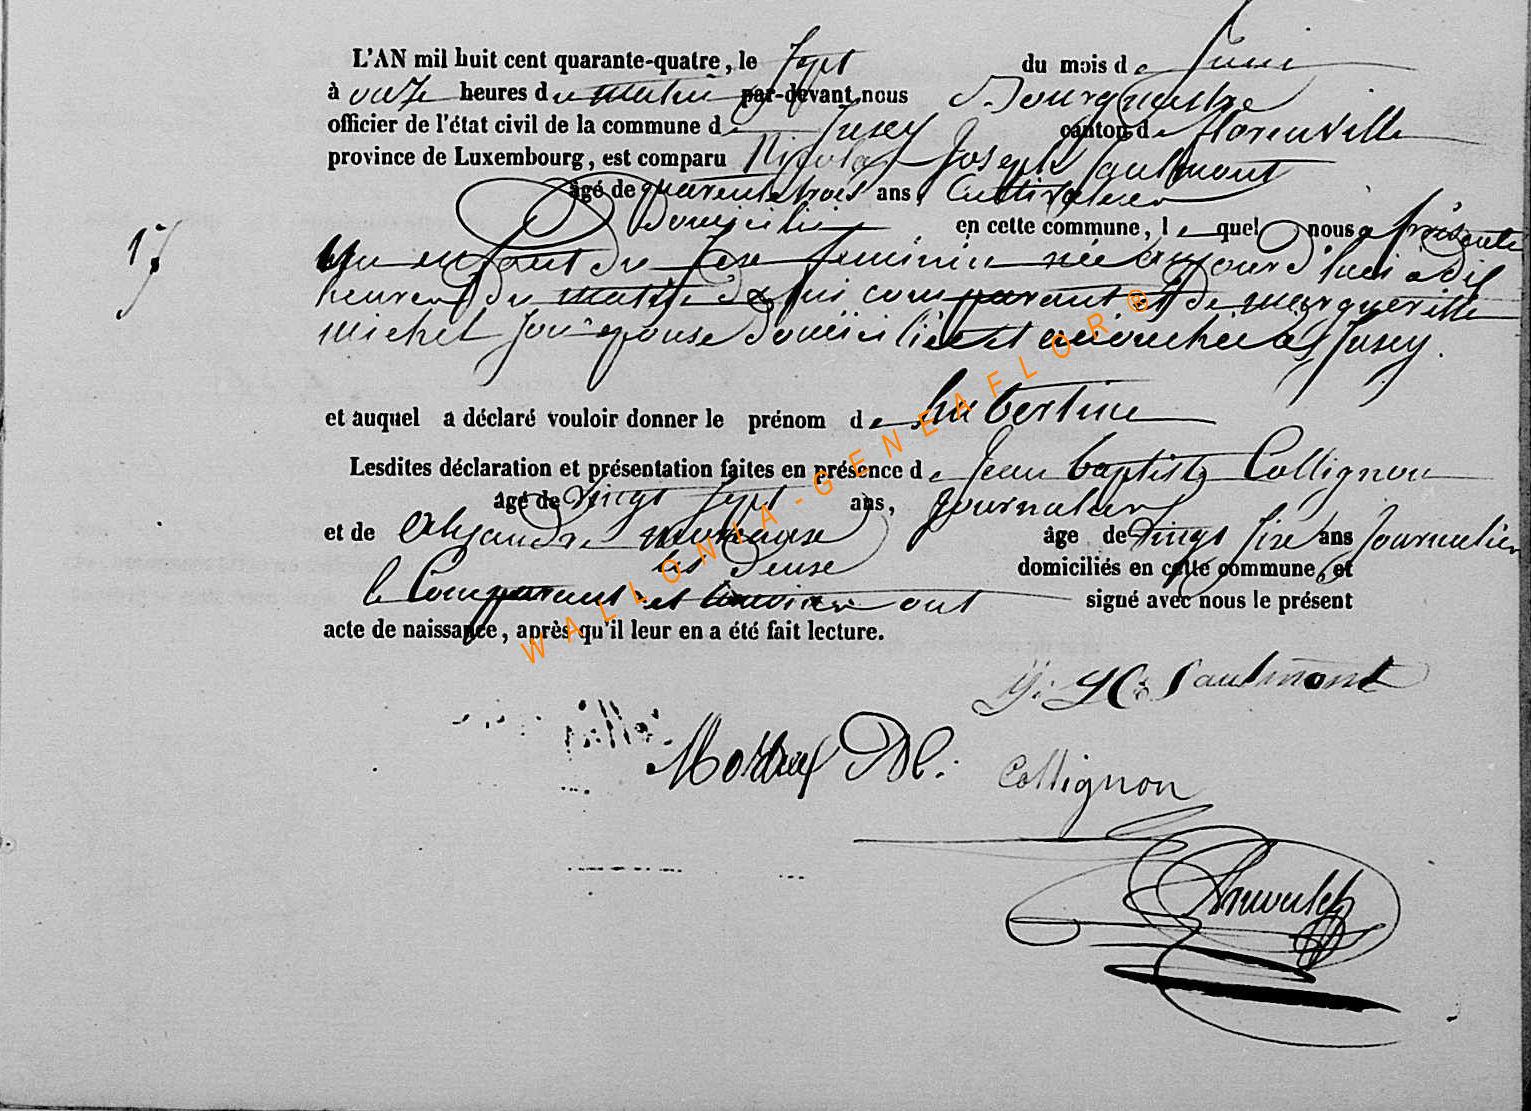 L'AN mil huit cent quarante-quatre, le Sept du mois de Juin
à onze heures du matin par-devant nous Bourgmestre
officier de l'état civil de la commune de Jusey canton de florenville
province de Luxembourg, est comparu Nicolas Joseph Saulmont
âgé de quarente trois ans, Cultivateur
Domicilié en cette commune, lequel nous a présenté
17
un enfant du sexe feminin née aujourd'hui a dix
heures du matin de lui comparant et de marguerite
michel son epouse domiciliée et accouchée a Jusey.
et auquel a déclaré vouloir donner le prénom de hubertine
Lesdites déclaration et présentation faites en présence de Jean baptiste Collignon
âgé de vingt sept ans, Journalier
et de Alexandre moreaux âge de vingt six ans Journalier
les deux domiciliés en cette commune, et
le Comparant et temoins ont signé avec nous le présent
acte de naissance, après qu'il leur en a été fait lecture.
Saulmont
Collignon
WALLONIA-GENEAFLOR®